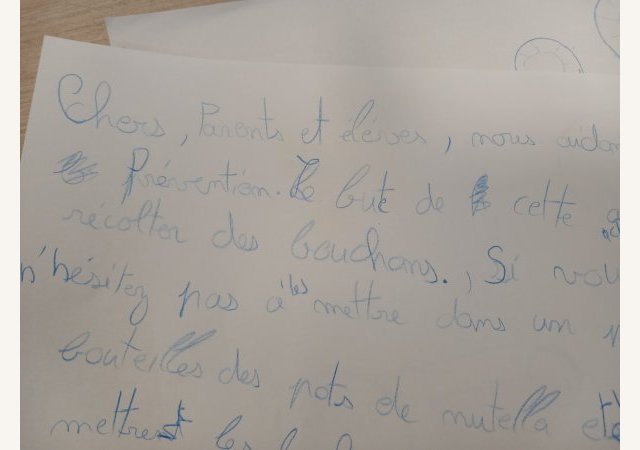 Chers, Parents et élèves, nous aidon
Prévention. Le but de cette
récolter des bouchons., Si vou
n'hésitez pas à les mettre dans un
bouteilles des pots de nutella
mettre les